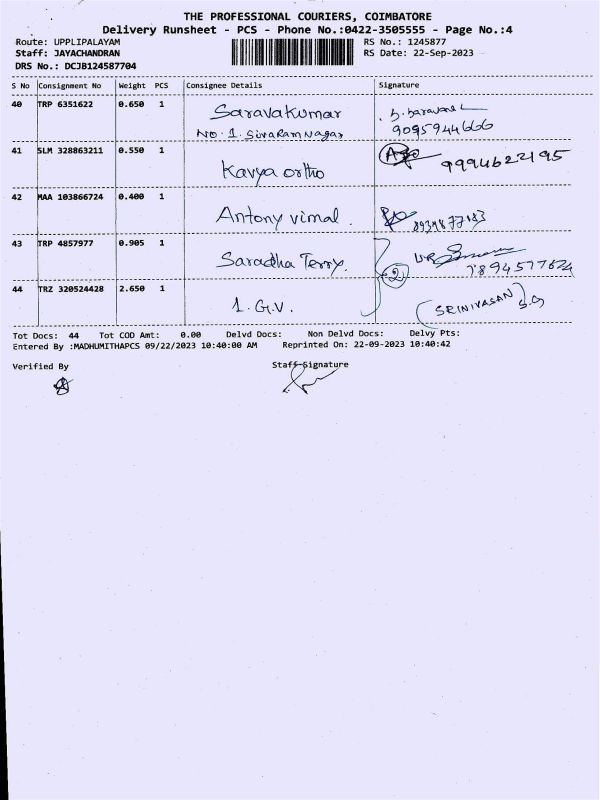 THE PROFESSIONAL COURIERS, COIMBATORE
Delivery Runsheet - PCS - Phone No.:0422-3505555 - Page No.:4
Route: UPPLIPALAYAM RS No.: 1245877
Staff: JAYACHANDRAN RS Date: 22-Sep-2023
DRS No.: DCJB124587704
S No Consignment No Weight PCS Consignee Details Signature
40 TRP 6351622 0.650 1 Saravakumar
No. 1. Sivaram Nagar 9095944666
41 SLM 328863211 0.550 1 Kavya ortho 9994622195
42 MAA 103866724 0.400 1 Antony vimal.
43 TRP 4857977 0.905 1 Saradha Terry. 2 7894577624
44 TRZ 320524428 2.650 1 1. G.V. (SRINIVASAN)
Tot Docs: 44 Tot COD Amt: 0.00 Delvd Docs: Non Delvd Docs: Delvy Pts:
Entered By :MADHUMITHAPCS 09/22/2023 10:40:00 AM Reprinted On: 22-09-2023 10:40:42
Verified By Staff Signature